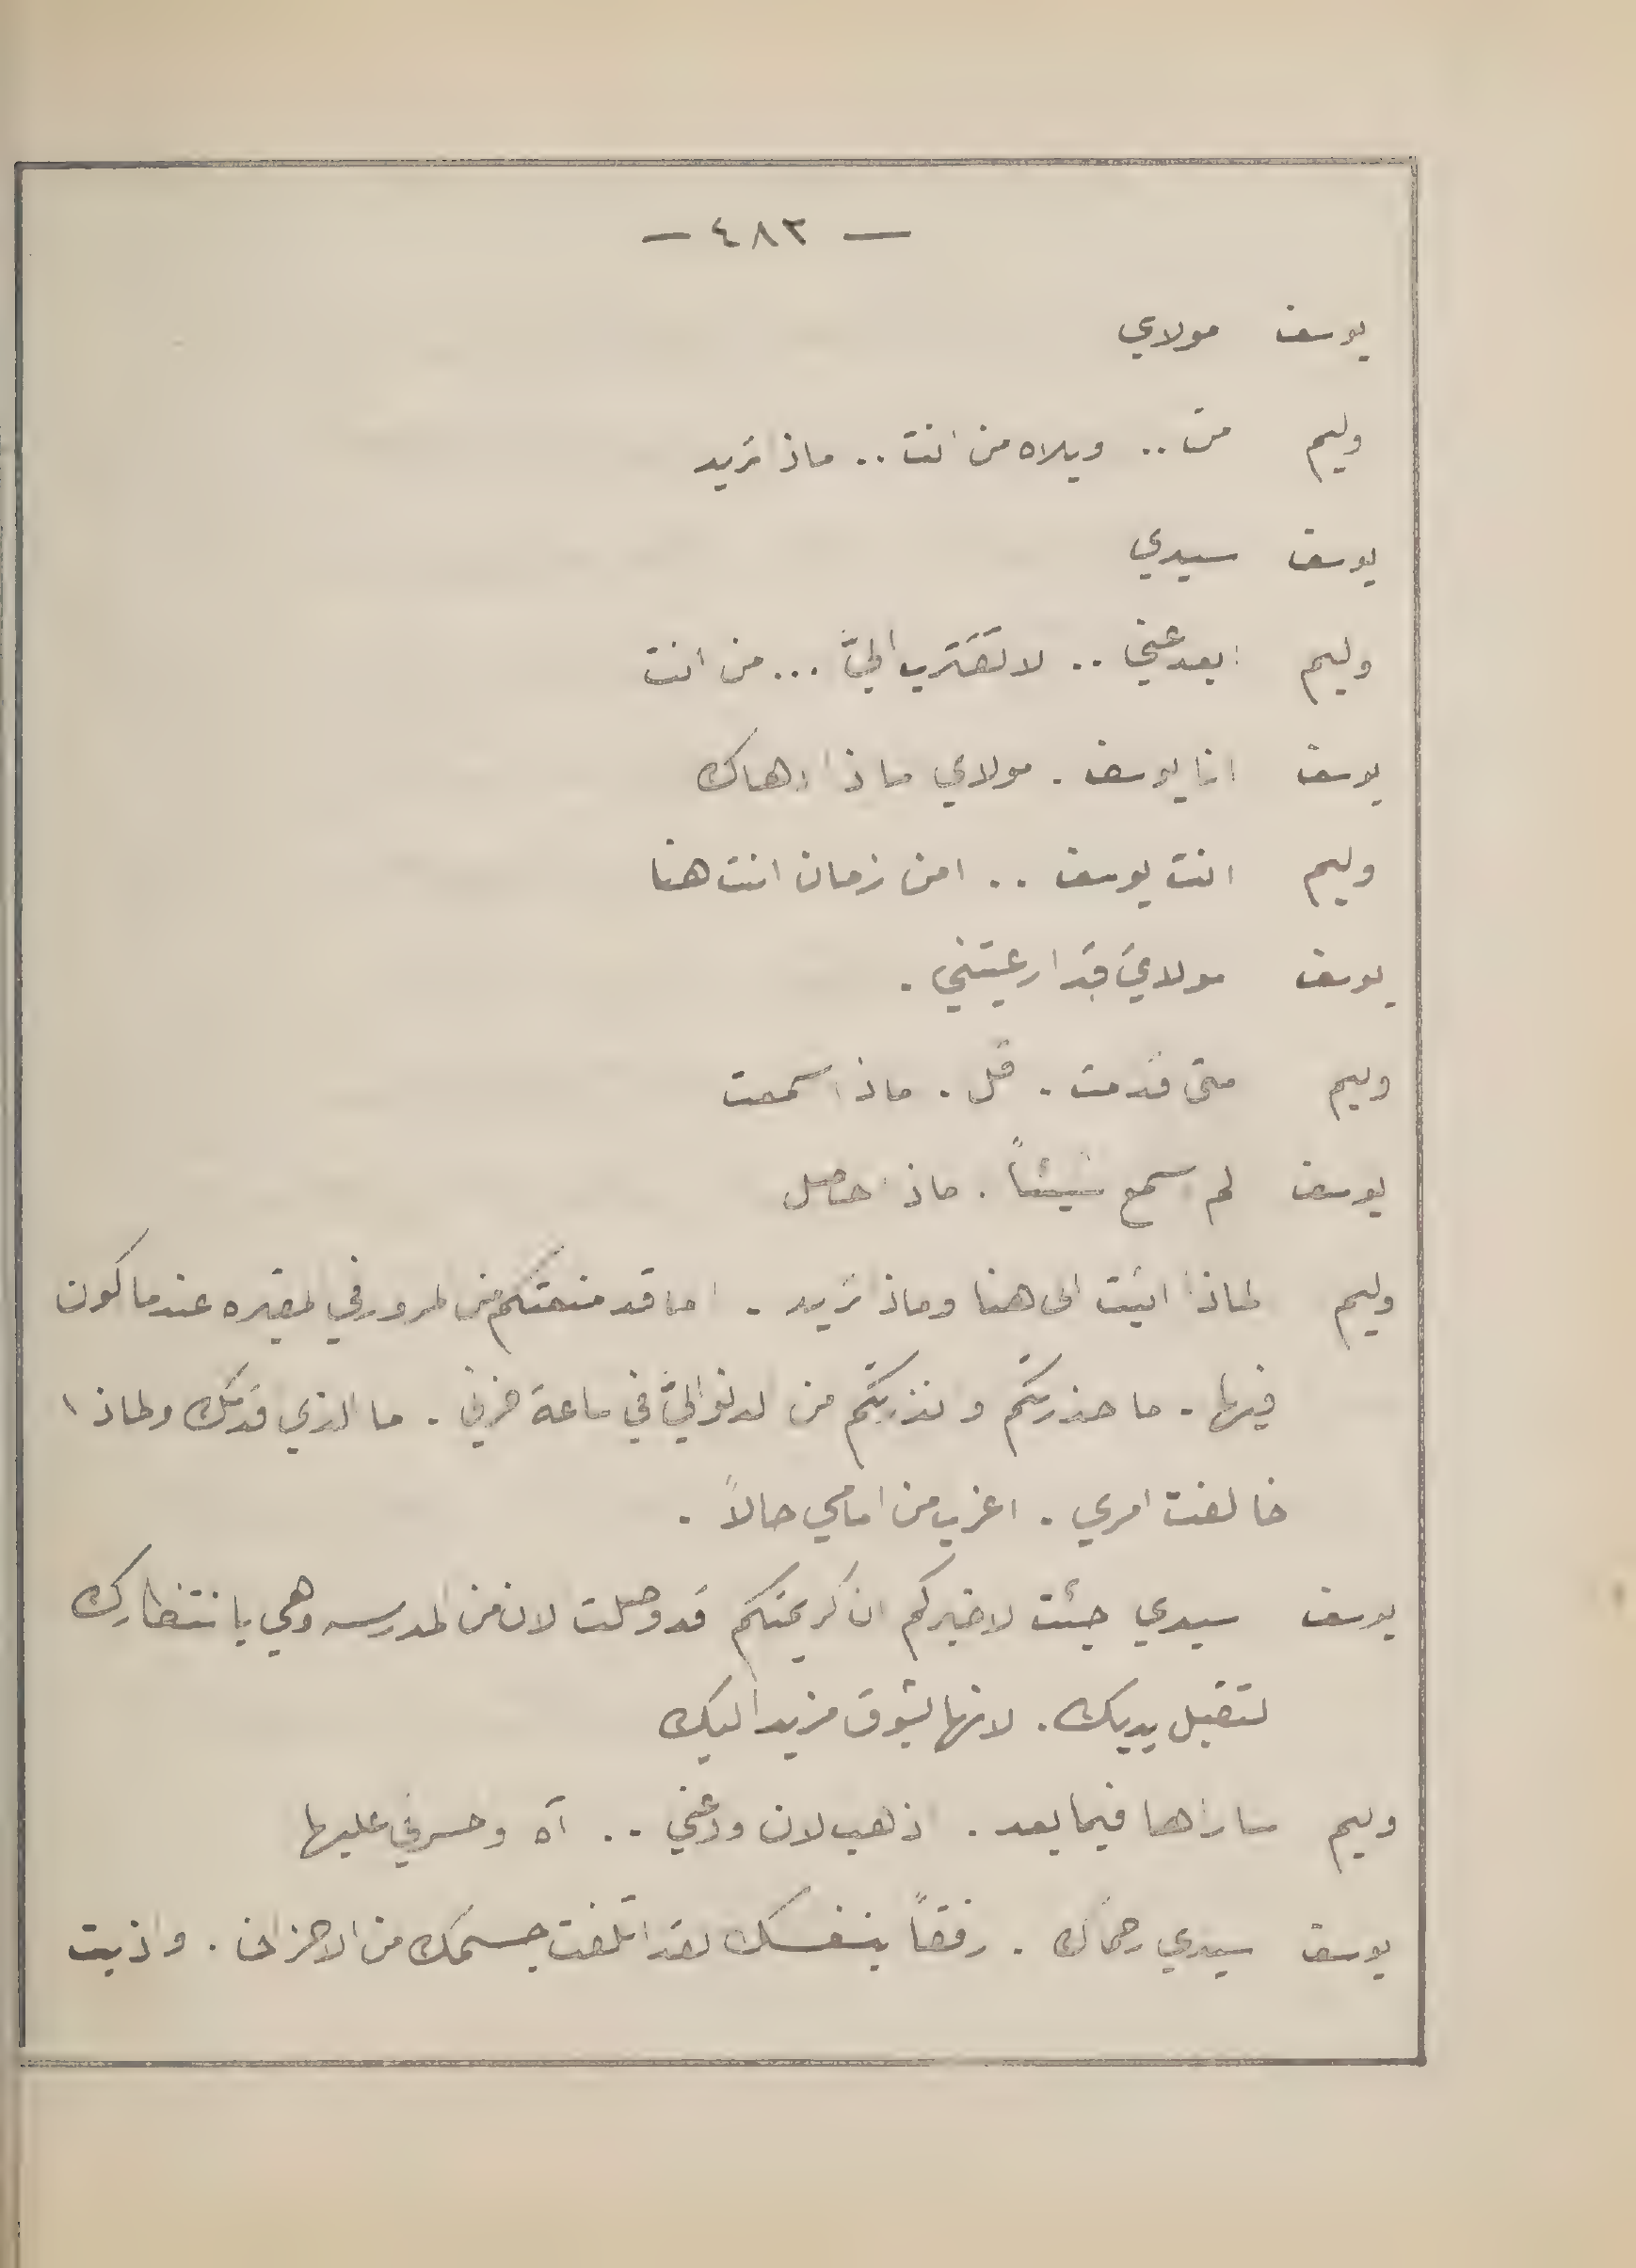 — ٤٨٣ —
يوسف مولاي
وليم من .. ويلاه من انت .. ماذا تريد
يوسف سيدي
وليم ابعد عني .. لا تقترب اليَّ ... من انت
يوسف انا يوسف . مولاي ماذا دهاك
وليم انت يوسف .. امن زمان انت هنا
يوسف مولايَ قد ارعبتني .
وليم متى قدمت . قل . ماذا سمعت
يوسف لم اسمع شيئاً . ماذا حصل
وليم لماذا اتيت الى هنا وماذا تريد . اما قد منعتكم من المرور في المقبره عندما اكون
فيها . اما حذرتكم وانذرتكم من الدنو اليَّ في ساعة حزني . ما الذي قدمك ولماذا
خالفت امري . اغرب من امامي حالاً .
يوسف سيدي جئت لاخبركم ان كريمتكم قد وصلت الان من المدرسه وهي بانتظارك
لتقبل يديك . لانها بشوق مزيد اليك
وليم ساراها فيما بعد . اذهب الان ودعني .. آه وحسرتي عليها
يوسف سيدي رحماك . رفقاً بنفسك لقد اتلفت جسمك من الاحزان . واذبت